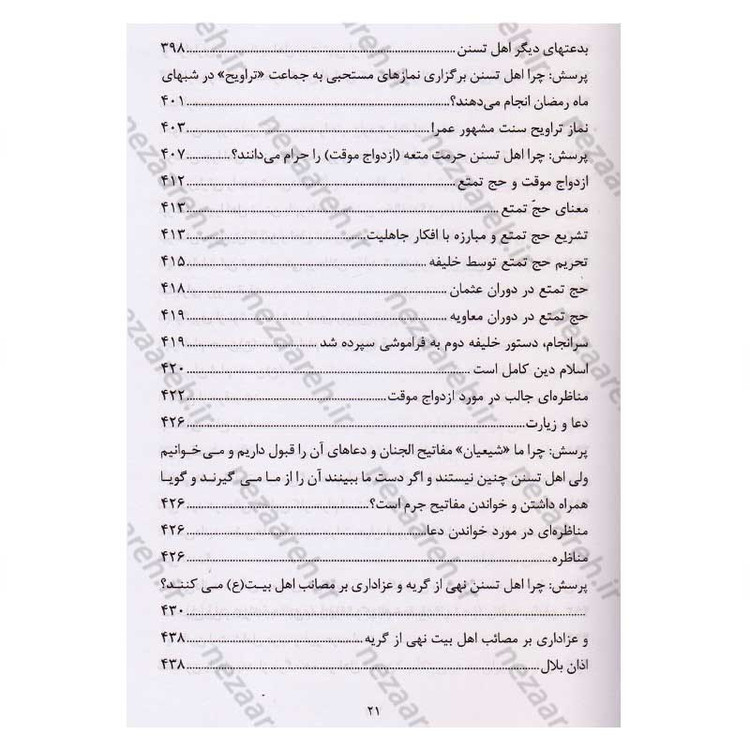 بدعتهای دیگر اهل تسنن ........ ۳۹۸
پرسش: چرا اهل تسنن برگزاری نمازهای مستحبی به جماعت «تراویح» در شبهای
ماه رمضان انجام می‌دهند؟ ........ ۴۰۱
نماز تراویح سنت مشهور عمرا ........ ۴۰۳
پرسش: چرا اهل تسنن حرمت متعه (ازدواج موقت) را حرام می‌دانند؟ ........ ۴۰۷
ازدواج موقت و حج تمتع ........ ۴۱۲
معنای حجّ تمتع ........ ۴۱۳
تشریع حج تمتع و مبارزه با افکار جاهلیت ........ ۴۱۳
تحریم حج تمتع توسط خلیفه ........ ۴۱۵
حج تمتع در دوران عثمان ........ ۴۱۸
حج تمتع در دوران معاویه ........ ۴۱۹
سرانجام، دستور خلیفه دوم به فراموشی سپرده شد ........ ۴۱۹
اسلام دین کامل است ........ ۴۲۰
مناظره‌ای جالب در مورد ازدواج موقت ........ ۴۲۲
دعا و زیارت ........ ۴۲۶
پرسش: چرا ما «شیعیان» مفاتیح الجنان و دعاهای آن را قبول داریم و می خوانیم
ولی اهل تسنن چنین نیستند و اگر دست ما ببینند آن را از ما می گیرند و گویا
همراه داشتن و خواندن مفاتیح جرم است؟ ........ ۴۲۶
مناظره‌ای در مورد خواندن دعا ........ ۴۲۶
مناظره ........ ۴۲۶
پرسش: چرا اهل تسنن نهی از گریه و عزاداری بر مصائب اهل بیت(ع) می کنند؟
........ ۴۳۰
و عزاداری بر مصائب اهل بیت نهی از گریه ........ ۴۳۸
اذان بلال ........ ۴۳۸
۲۱
nezaareh.ir